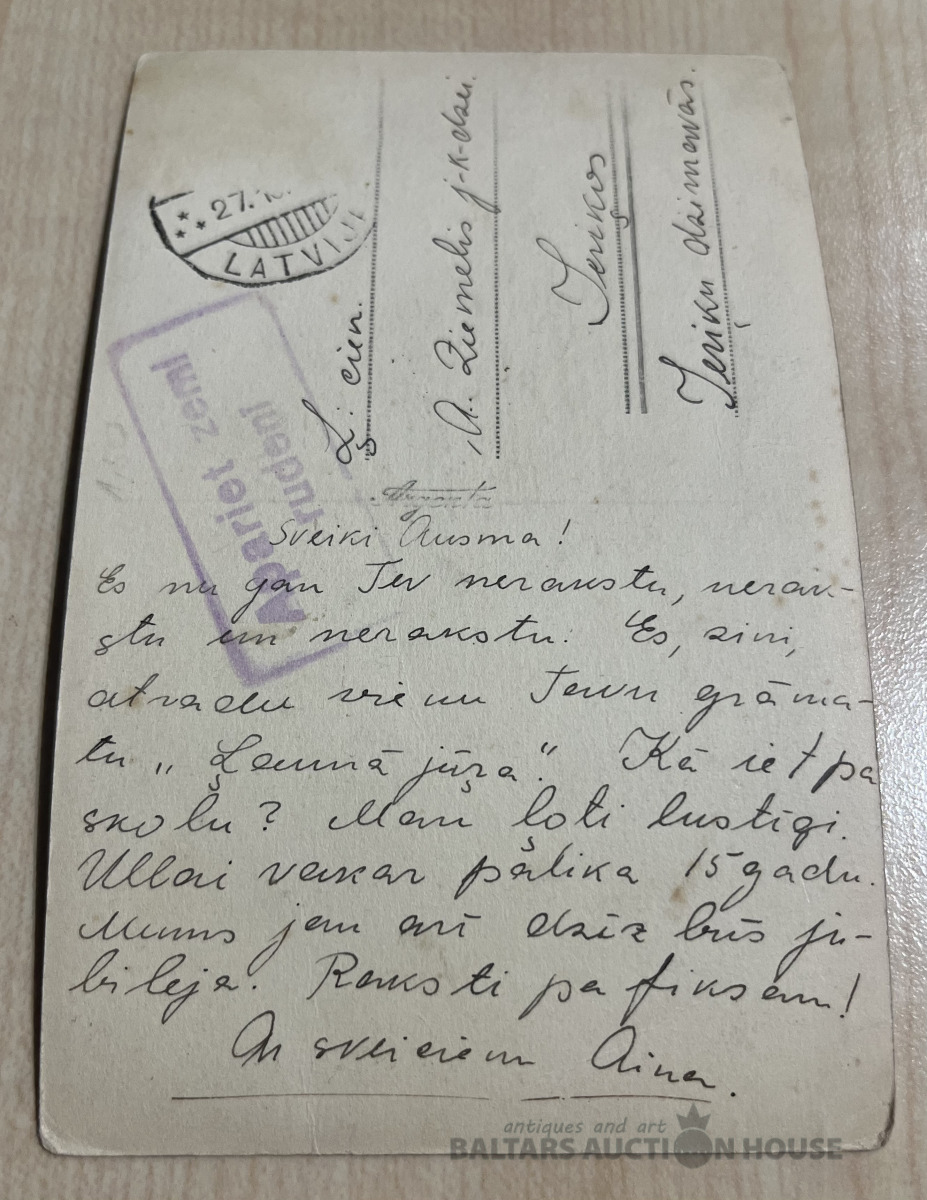 27.
LATVIJ
Apariet zemi
rudenī
Ļ. cien.
A. Ziemelis j-k-dzei.
Ieriķos
Ieriķu dzirnavās.
Sveiki Ausma!
Es nu gan Tev nerakstu, nerak-
stu un nerakstu. Es, zini,
atradu vienu Tavu grāma-
tu „Ļaunā jūŗa". Kā iet pa
skolu? Man ļoti lustīgi.
Ullai vakar palika 15 gadu.
Mums jau arī drīz būs ju-
bileja. Raksti pa fiksam!
Ar sveicieniem Aina.
antiques and art
BALTARS AUCTION HOUSE